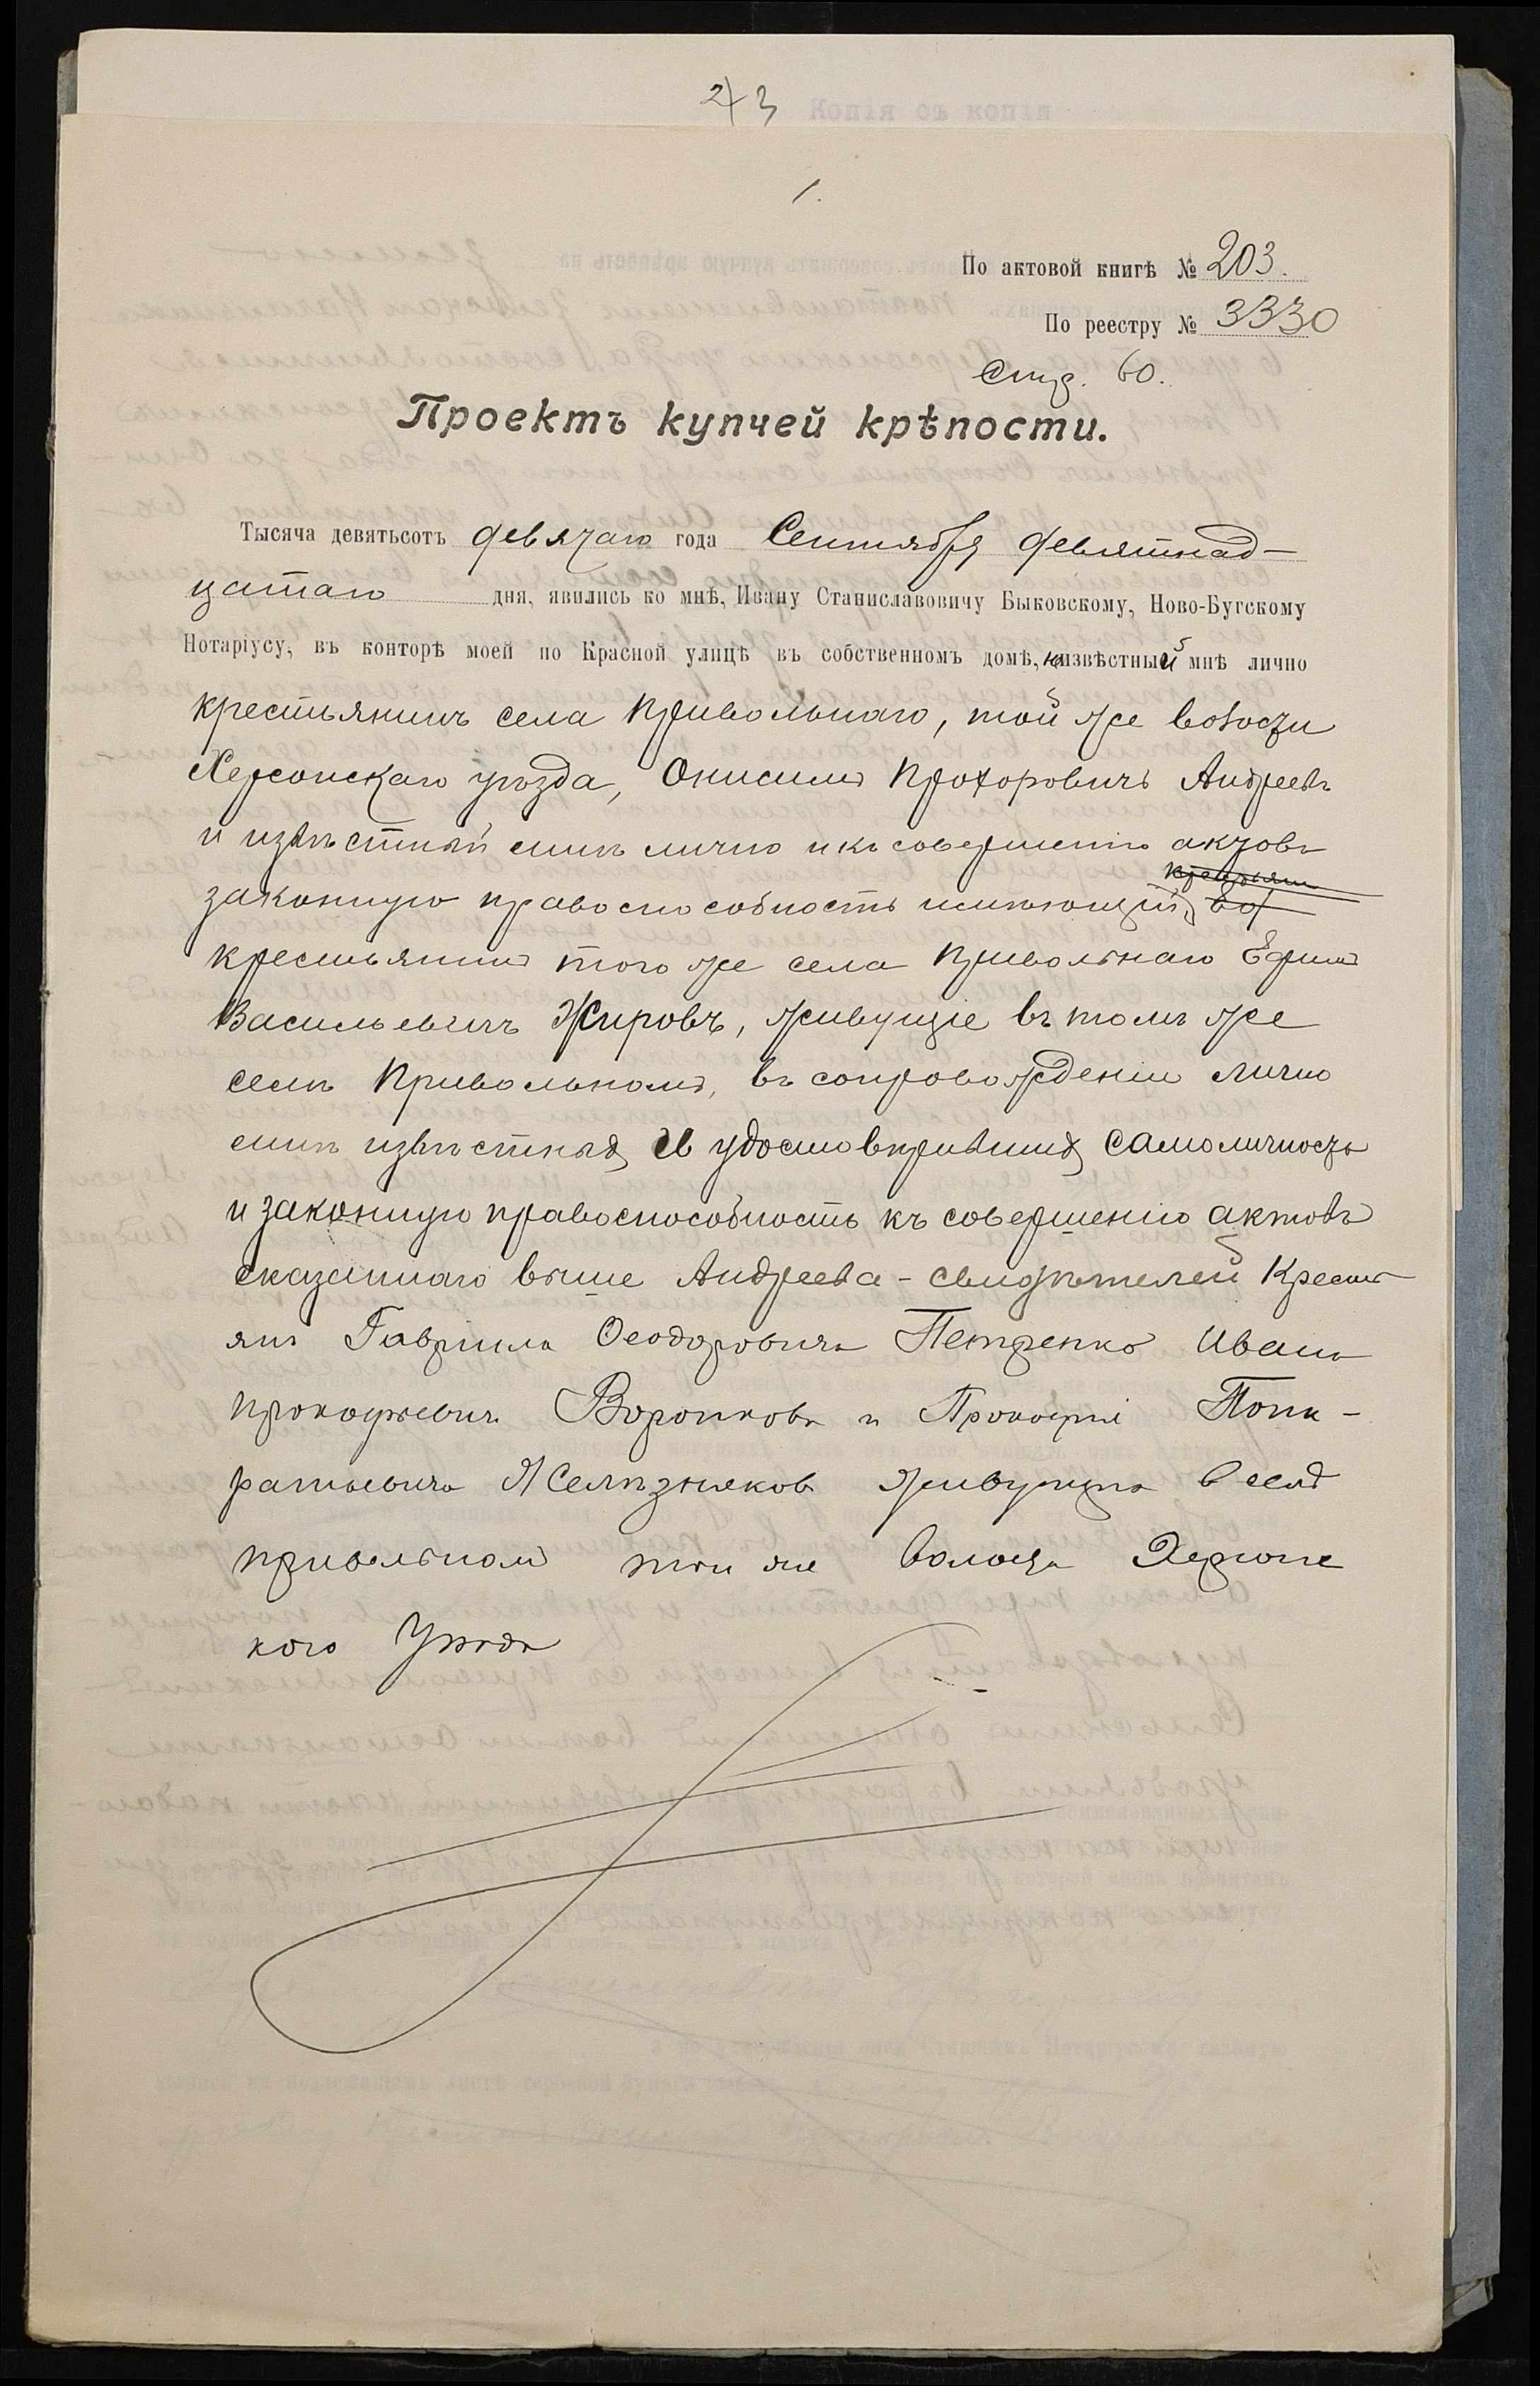 43 Копія съ копія
1.
По актовой книгѣ № 203.
По реестру № 3330
Стр. 60.
Проектъ купчей крѣпости.
Тысяча девятьсотъ девятаго года Сентября девятнад-
цатаго дня, явились ко мнѣ, Ивану Станиславовичу Быковскому, Ново-Бугскому
Нотаріусу, въ конторѣ моей по Красной улицѣ въ собственномъ домѣ, неизвѣстный мнѣ лично
крестьянинъ села Привольнаго, той же волости
Херсонскаго уѣзда, Онисимъ Прохоровичъ Андреевъ
и извѣстный мнѣ лично и къ совершенію актовъ
законную правоспособность имѣющій,
крестьянинъ того же села Привольнаго Ефимъ
Васильевичъ Жировъ, живущіе въ томъ же
селѣ Привольномъ, въ сопровожденіи лично
мнѣ извѣстныхъ и удостовѣрившихъ самоличность
и законную правоспособность къ совершенію актовъ
сказаннаго выше Андреева - свидѣтелей Крестья
янъ Гавріила Ѳеодоровича Петренко Ивана
Прокофьевича Воронкова и Прокофія Понк-
ратьевича Желѣзнякова живущихъ в селѣ
Привольномъ той же волости Херсонс
кого Уѣзда